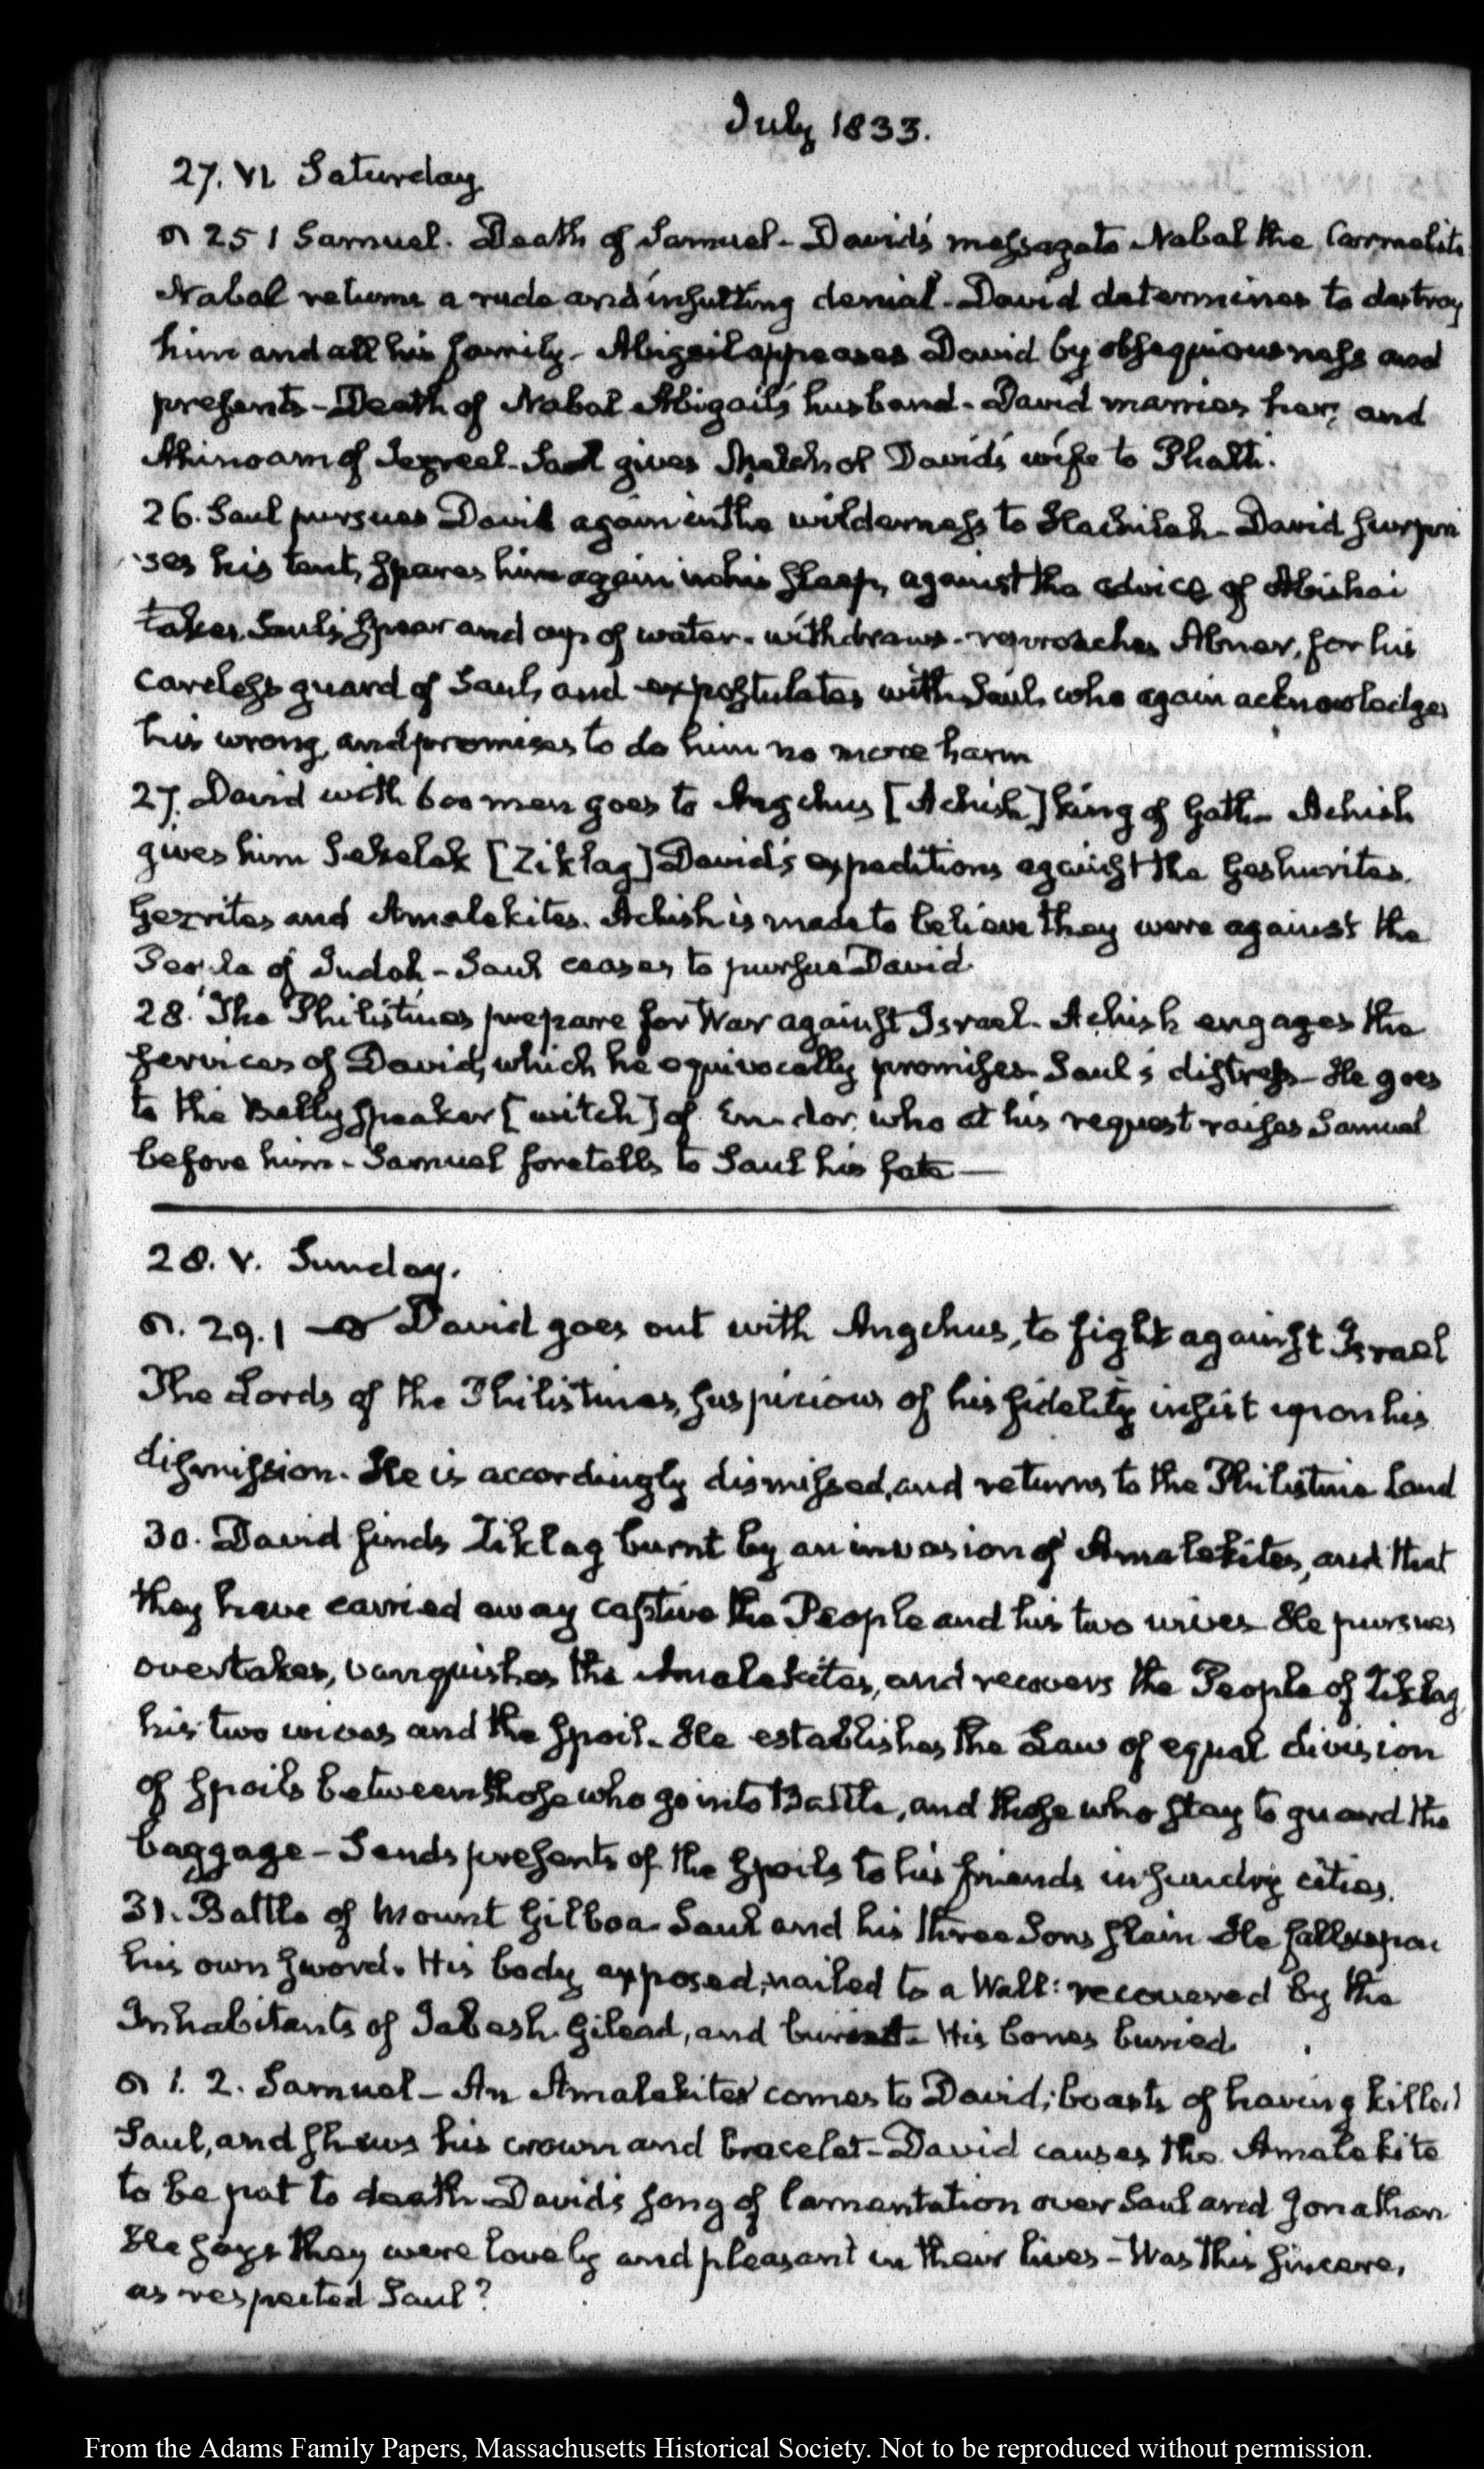 July 1833.
27. VI. Saturday
25 1 Samuel. Death of Samuel - David's message to Nabal the Carmelite
Nabal returns a rude and insulting denial - David determines to destroy
him and all his family - Abigail appeases David by obsequiousness and
presents - Death of Nabal Abigail's husband - David marries her, and
Ahinoam of Jezreel - Saul gives Melchol David's wife to Phalti.
26. Saul pursues David again in the wilderness to Hachilah - David surpri
ses his tent, spares him again in his sleep, against the advice of Abishai
takes Saul's spear and cup of water - withdraws - reproaches Abner, for his
careless guard of Saul, and expostulates with Saul, who again acknowledges
his wrong, and promises to do him no more harm
27. David with 600 men goes to Angchus [Achish] king of Gath - Achish
gives him Sekelak [Ziklag] David's expeditions against the Geshurites.
Gezrites and Amalekites. Achish is made to believe they were against the
People of Judah - Saul ceases to pursue David
28. The Philistines prepare for War against Israel - Achish engages the
services of David, which he equivocally promises Saul's distress - He goes
to the Belly speaker [witch] of En-dor, who at his request raises Samuel
before him - Samuel foretells to Saul his fate —
28. V. Sunday.
29. 1 David goes out with Angchus, to fight against Israel
The Lords of the Philistines, suspicious of his fidelity insist upon his
dismission. He is accordingly dismissed, and returns to the Philistine Land
30. David finds Ziklag burnt by an invasion of Amalekites, and that
they have carried away captive the People and his two wives He pursues
overtakes, vanquishes the Amalekites, and recovers the People of Ziklag
his two wives and the spoil - He establishes the Law of equal division
of spoils between those who go into Battle, and those who stay to guard the
baggage - Sends presents of the spoils to his friends in sundry cities.
31. Battle of Mount Gilboa - Saul and his three Sons slain He falls upon
his own sword. His body exposed, nailed to a Wall: recovered by the
Inhabitants of Jabesh Gilead, and burnt - His bones buried.
1. 2. Samuel - An Amalekite comes to David; boasts of having killed
Saul, and shews his crown and bracelet - David causes the Amalekite
to be put to death - David's song of lamentation over Saul and Jonathan
He says they were lovely and pleasant in their lives - Was this sincere,
as respected Saul?
From the Adams Family Papers, Massachusetts Historical Society. Not to be reproduced without permission.